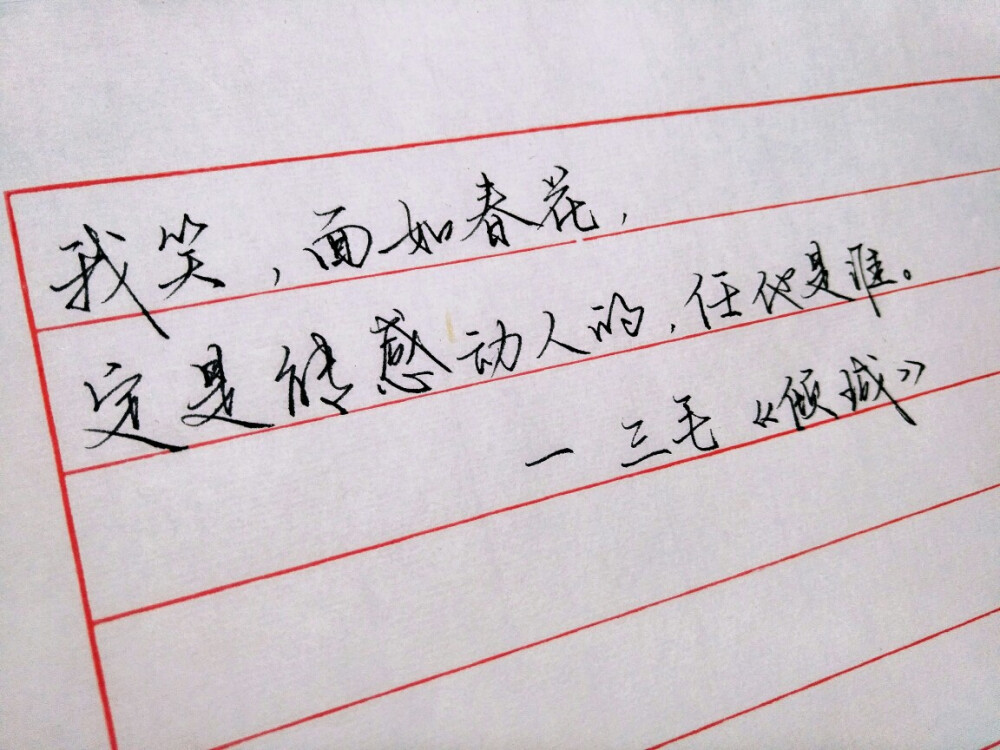 我笑，面如春花，
定是能感动人的，任他是谁。
— 三毛《倾城》